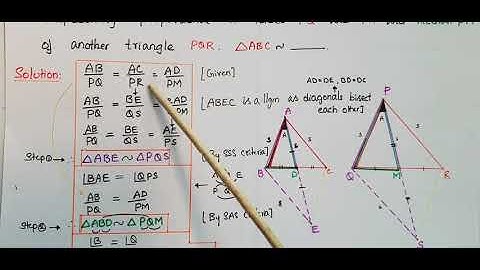 of another triangle PQR. △ABC ~ ____.
Solution:
AB/PQ = AC/PR = AD/PM [Given]
AD=DE, BD=DC
AB/PQ = BE/QS = 2AD/ [ABEC is a llgm as diagonals bisect each other]
AB/PQ = BE/QS = AE/PS
Step① △ABE ~ △PQS [By SSS criteria]
∠BAE = ∠QPS
AB/PQ = AD/PM
Step② △ABD ~ △PQM [By SAS criteria]
∠B = ∠Q
A
B
D
C
E
P
Q
M
R
S